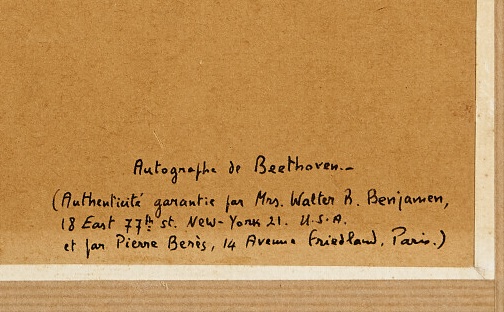 Autographe de Beethoven.-
(Authenticité garantie par Mrs. Walter R. Benjamen,
18 East 77th st. New-York 21. U.S.A.
et par Pierre Berès, 14 Avenue Friedland, Paris.)